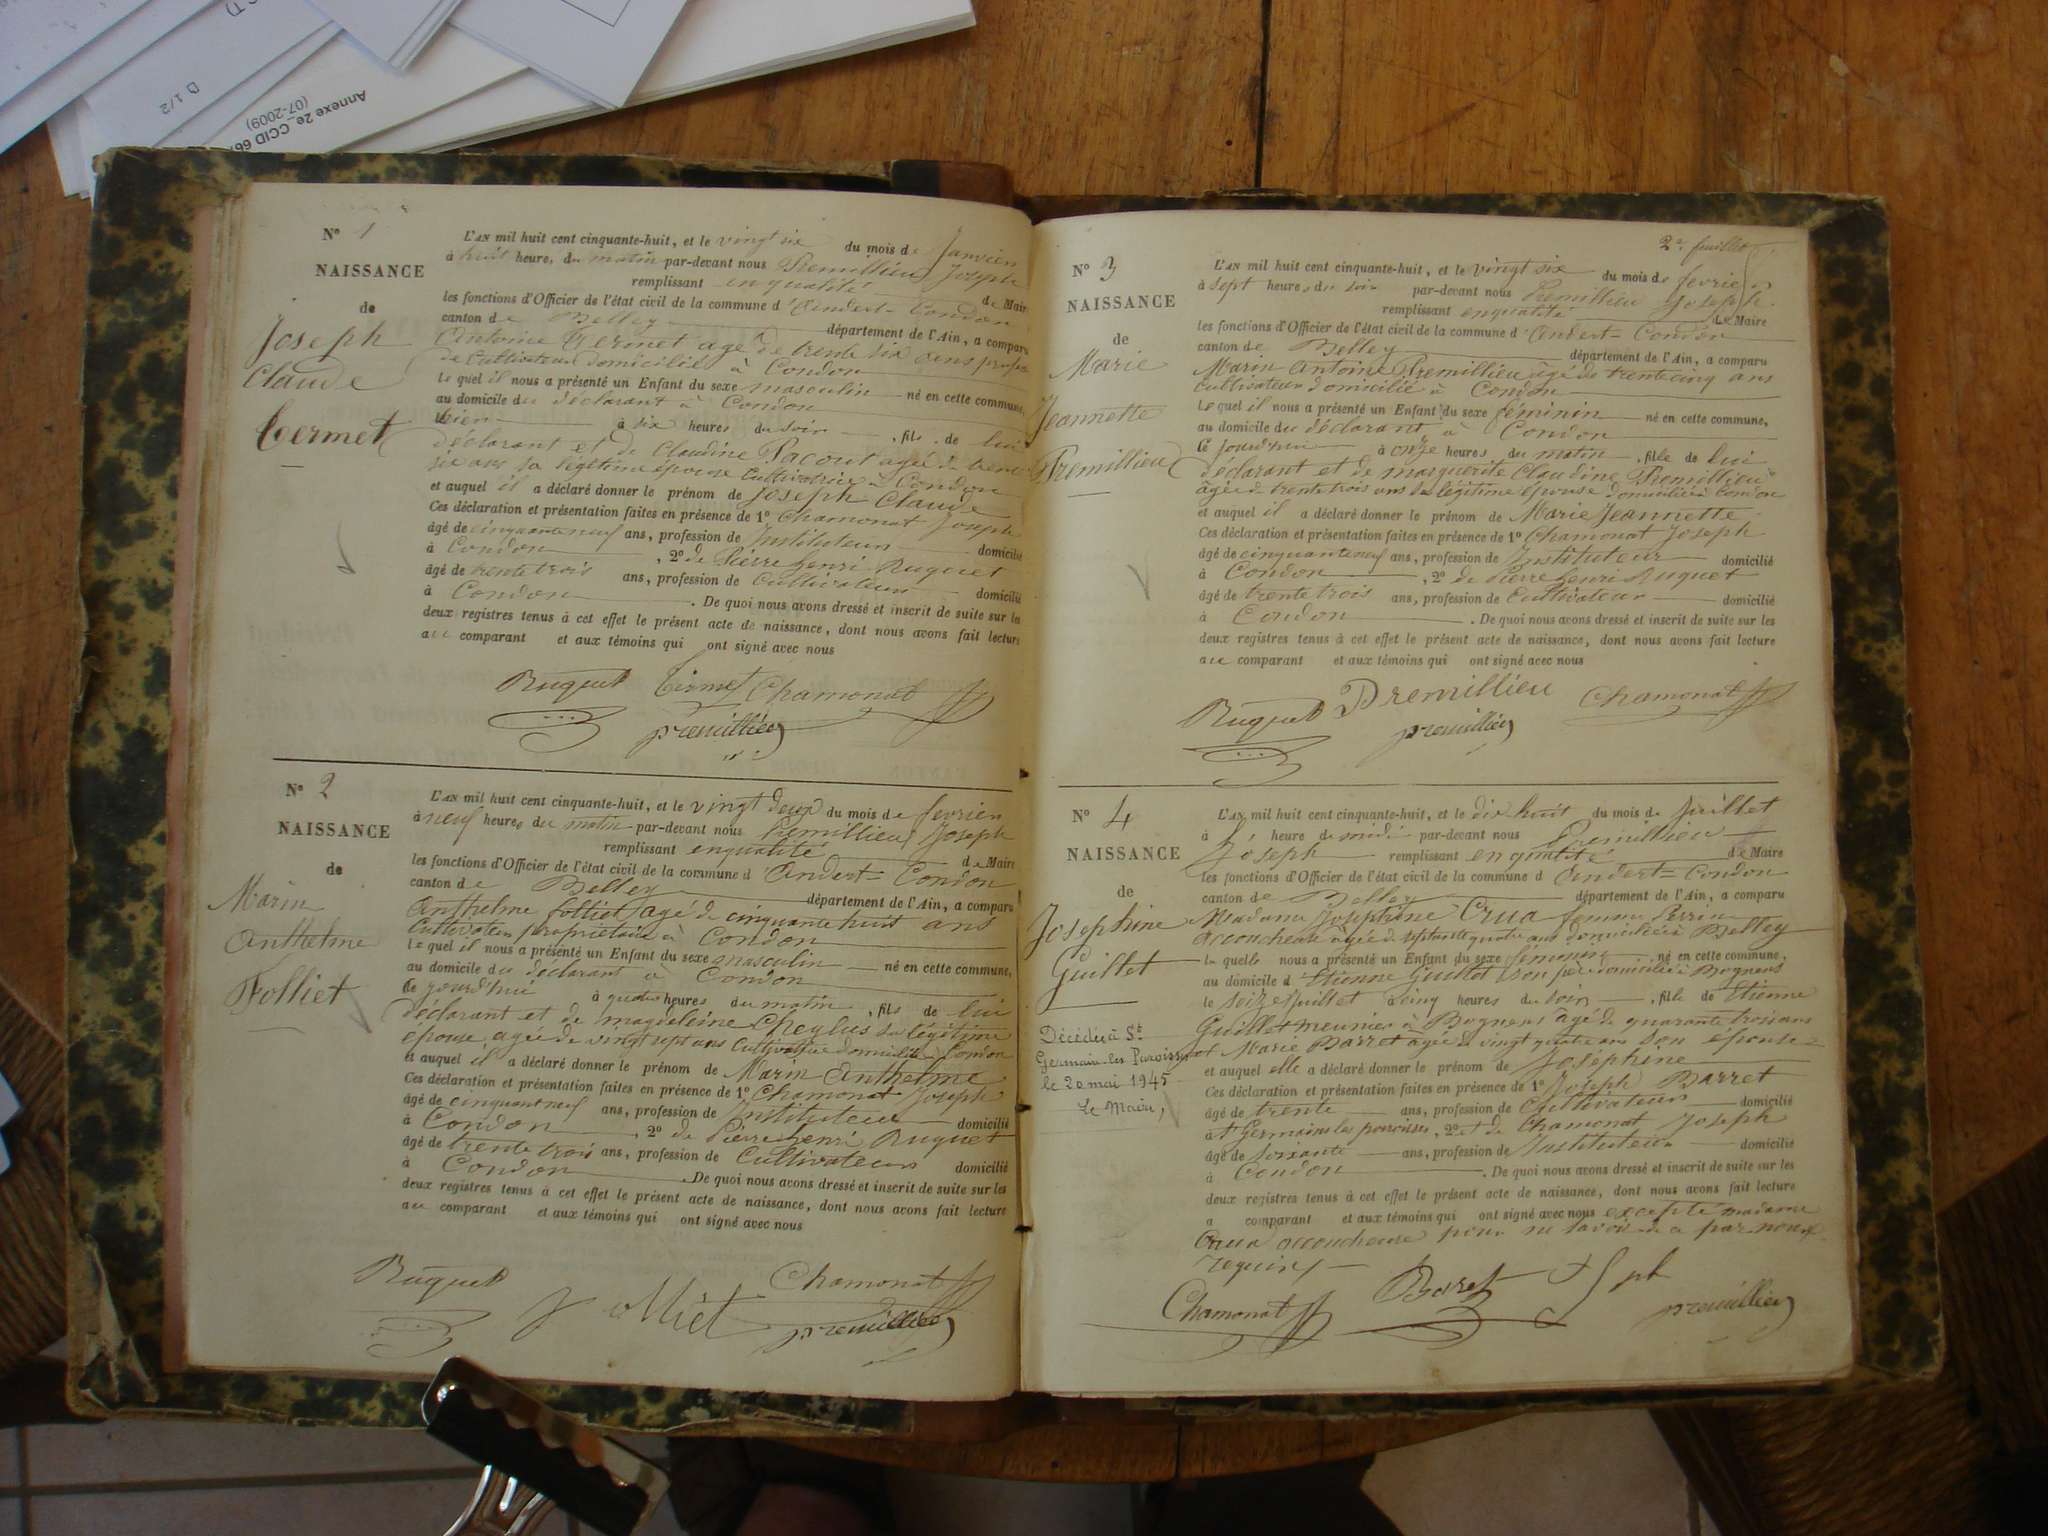 D 1/2
Annexe 2e_CCID 66
(07-2009)
N° 1
NAISSANCE
de
Joseph
Claude
Termet
L'AN mil huit cent cinquante-huit, et le vingt six du mois de Janvier
à huit heure, du matin par-devant nous Premillieu Joseph
remplissant en qualité de Maire
les fonctions d'Officier de l'état civil de la commune d'Andert-Condon
canton de Belley département de l'Ain, a comparu
Antoine Termet agé de trente six ans
de Cultivateur domicilié à Condon
Lequel il nous a présenté un Enfant du sexe masculin né en cette commune,
au domicile du déclarant à Condon
hier à six heures du soir, fils de lui
déclarant et de Claudine Pacout agée de trente
six ans sa légitime épouse Cultivatrice à Condon
et auquel il a déclaré donner le prénom de Joseph Claude
Ces déclaration et présentation faites en présence de 1° Chamonat Joseph
âgé de cinquante neuf ans, profession de Instituteur domicilié
à Condon, 2° de Pierre henri Ruquet
âgé de trente trois ans, profession de Cultivateur domicilié
à Condon. De quoi nous avons dressé et inscrit de suite sur les
deux registres tenus à cet effet le présent acte de naissance, dont nous avons fait lecture
au comparant et aux témoins qui ont signé avec nous
Ruquet Termet Chamonat
premillieu
N° 2
NAISSANCE
de
Marin
Anthelme
Folliet
L'AN mil huit cent cinquante-huit, et le vingt deux du mois de fevrier
à neuf heures du matin par-devant nous Premillieu Joseph
remplissant en qualité de Maire
les fonctions d'Officier de l'état civil de la commune d'Andert-Condon
canton de Belley département de l'Ain, a comparu
Anthelme folliet agé de cinquante huit ans
Cultivateur propriétaire à Condon
Lequel il nous a présenté un Enfant du sexe masculin né en cette commune,
au domicile du déclarant à Condon
Ce jourd'hui à quatre heures du matin, fils de lui
déclarant et de magdeleine Cheylus sa légitime
épouse, agée de vingt sept ans Cultivatrice domiciliée à Condon
et auquel il a déclaré donner le prénom de Marin Anthelme
Ces déclaration et présentation faites en présence de 1° Chamonat Joseph
âgé de cinquant neuf ans, profession de Instituteur domicilié
à Condon, 2° de Pierre henri Ruquet
âgé de trente trois ans, profession de Cultivateur domicilié
à Condon. De quoi nous avons dressé et inscrit de suite sur les
deux registres tenus à cet effet le présent acte de naissance, dont nous avons fait lecture
au comparant et aux témoins qui ont signé avec nous
Ruquet Folliet Chamonat
premillieu
2e feuillet
N° 3
NAISSANCE
de
Marie
Jeannette
Premillieu
L'AN mil huit cent cinquante-huit, et le vingt six du mois de fevrier
à sept heures du soir par-devant nous Premillieu Joseph
remplissant en qualité de Maire
les fonctions d'Officier de l'état civil de la commune d'Andert-Condon
canton de Belley département de l'Ain, a comparu
Marin Antoine Premillieu âgé de trente cinq ans
cultivateur domicilié à Condon
Lequel il nous a présenté un Enfant du sexe féminin né en cette commune,
au domicile du déclarant à Condon
Ce jourd'hui à onze heures du matin, fille de lui
déclarant et de marguerite Claudine Premillieu
âgée de trente trois ans sa légitime épouse domiciliée à Condon
et auquel il a déclaré donner le prénom de Marie Jeannette
Ces déclaration et présentation faites en présence de 1° Chamonat Joseph
âgé de cinquante neuf ans, profession de Instituteur domicilié
à Condon, 2° de Pierre henri Ruquet
âgé de trente trois ans, profession de Cultivateur domicilié
à Condon. De quoi nous avons dressé et inscrit de suite sur les
deux registres tenus à cet effet le présent acte de naissance, dont nous avons fait lecture
au comparant et aux témoins qui ont signé avec nous
Ruquet Premillieu Chamonat
premillieu
N° 4
NAISSANCE
de
Josephine
Guillet
Décédée à St
Germain-les-Paroisses
le 20 mai 1945
Le Maire,
L'AN mil huit cent cinquante-huit, et le dix huit du mois de Juillet
à heure de midi par-devant nous Premillieu
Joseph remplissant en qualité de Maire
les fonctions d'Officier de l'état civil de la commune d'Andert-Condon
canton de Belley département de l'Ain, a comparu
Madame Josephine Crua femme Perrin
accoucheuse âgée de septante quatre ans domiciliée à Belley
Laquelle nous a présenté un Enfant du sexe féminin né en cette commune,
au domicile d'Etienne Guillet son père domicilié à Bognens
le seize Juillet à cinq heures du soir, fille de Etienne
Guillet meunier à Bognens agé de quarante trois ans
et Marie Barret agée de vingt quatre ans son épouse
et auquel elle a déclaré donner le prénom de Joséphine
Ces déclaration et présentation faites en présence de 1° Joseph Barret
âgé de trente ans, profession de Cultivateur domicilié
à St Germain les paroisses, 2° et de Chamonat Joseph
âgé de soixante ans, profession de Instituteur domicilié
à Condon. De quoi nous avons dressé et inscrit de suite sur les
deux registres tenus à cet effet le présent acte de naissance, dont nous avons fait lecture
a comparant et aux témoins qui ont signé avec nous excepté madame
Crua accoucheuse pour ne savoir de ce par nous
requise
Chamonat Baret Jph
premillieu